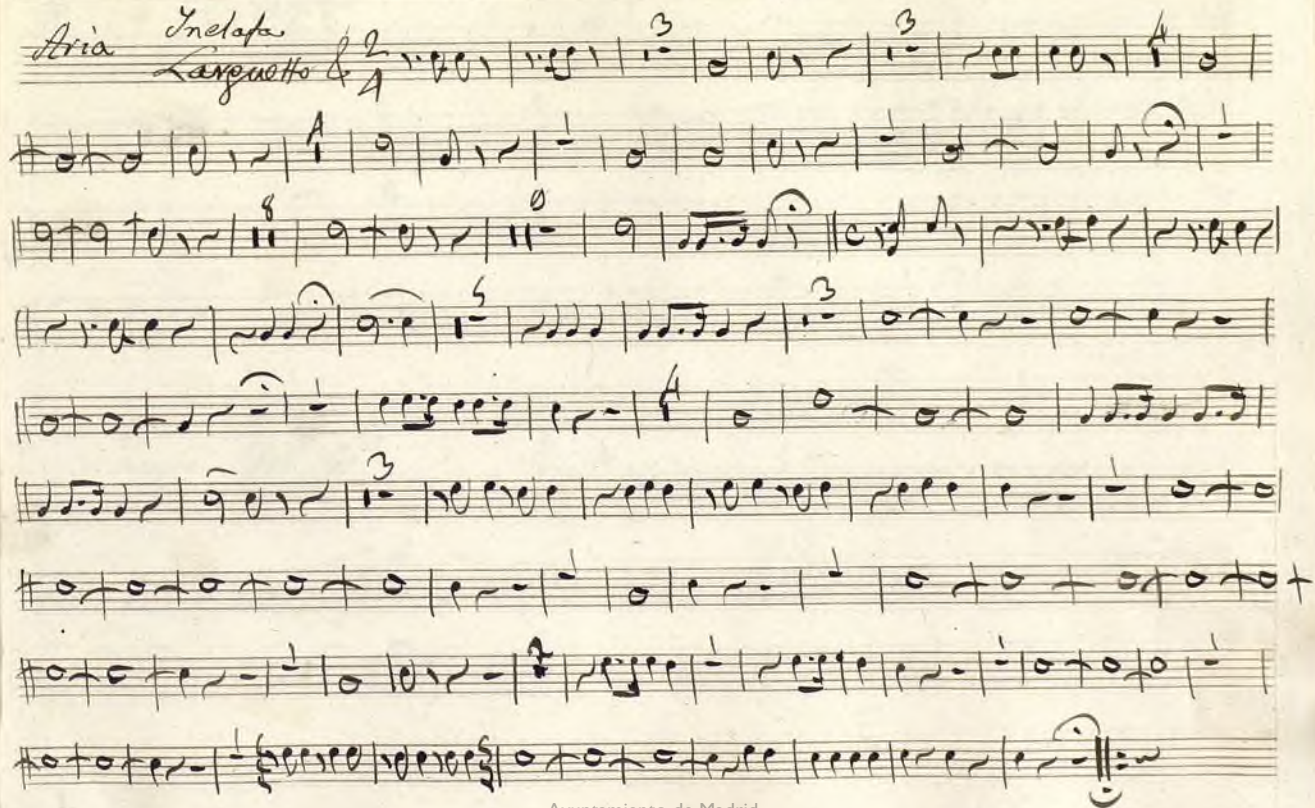 Inelafa
Aria Larguetto 2/4 3 3 4
4
8
5 3
4
3
Ayuntamiento de Madrid